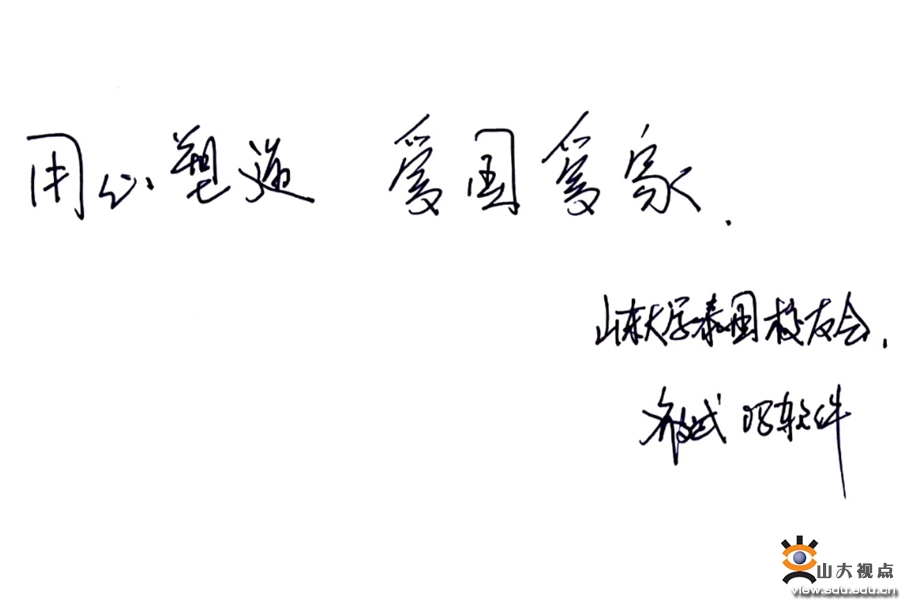 用心塑造 爱国爱家.
山东大学泰国校友会.
03软件
山大视点
www.view.sdu.edu.cn